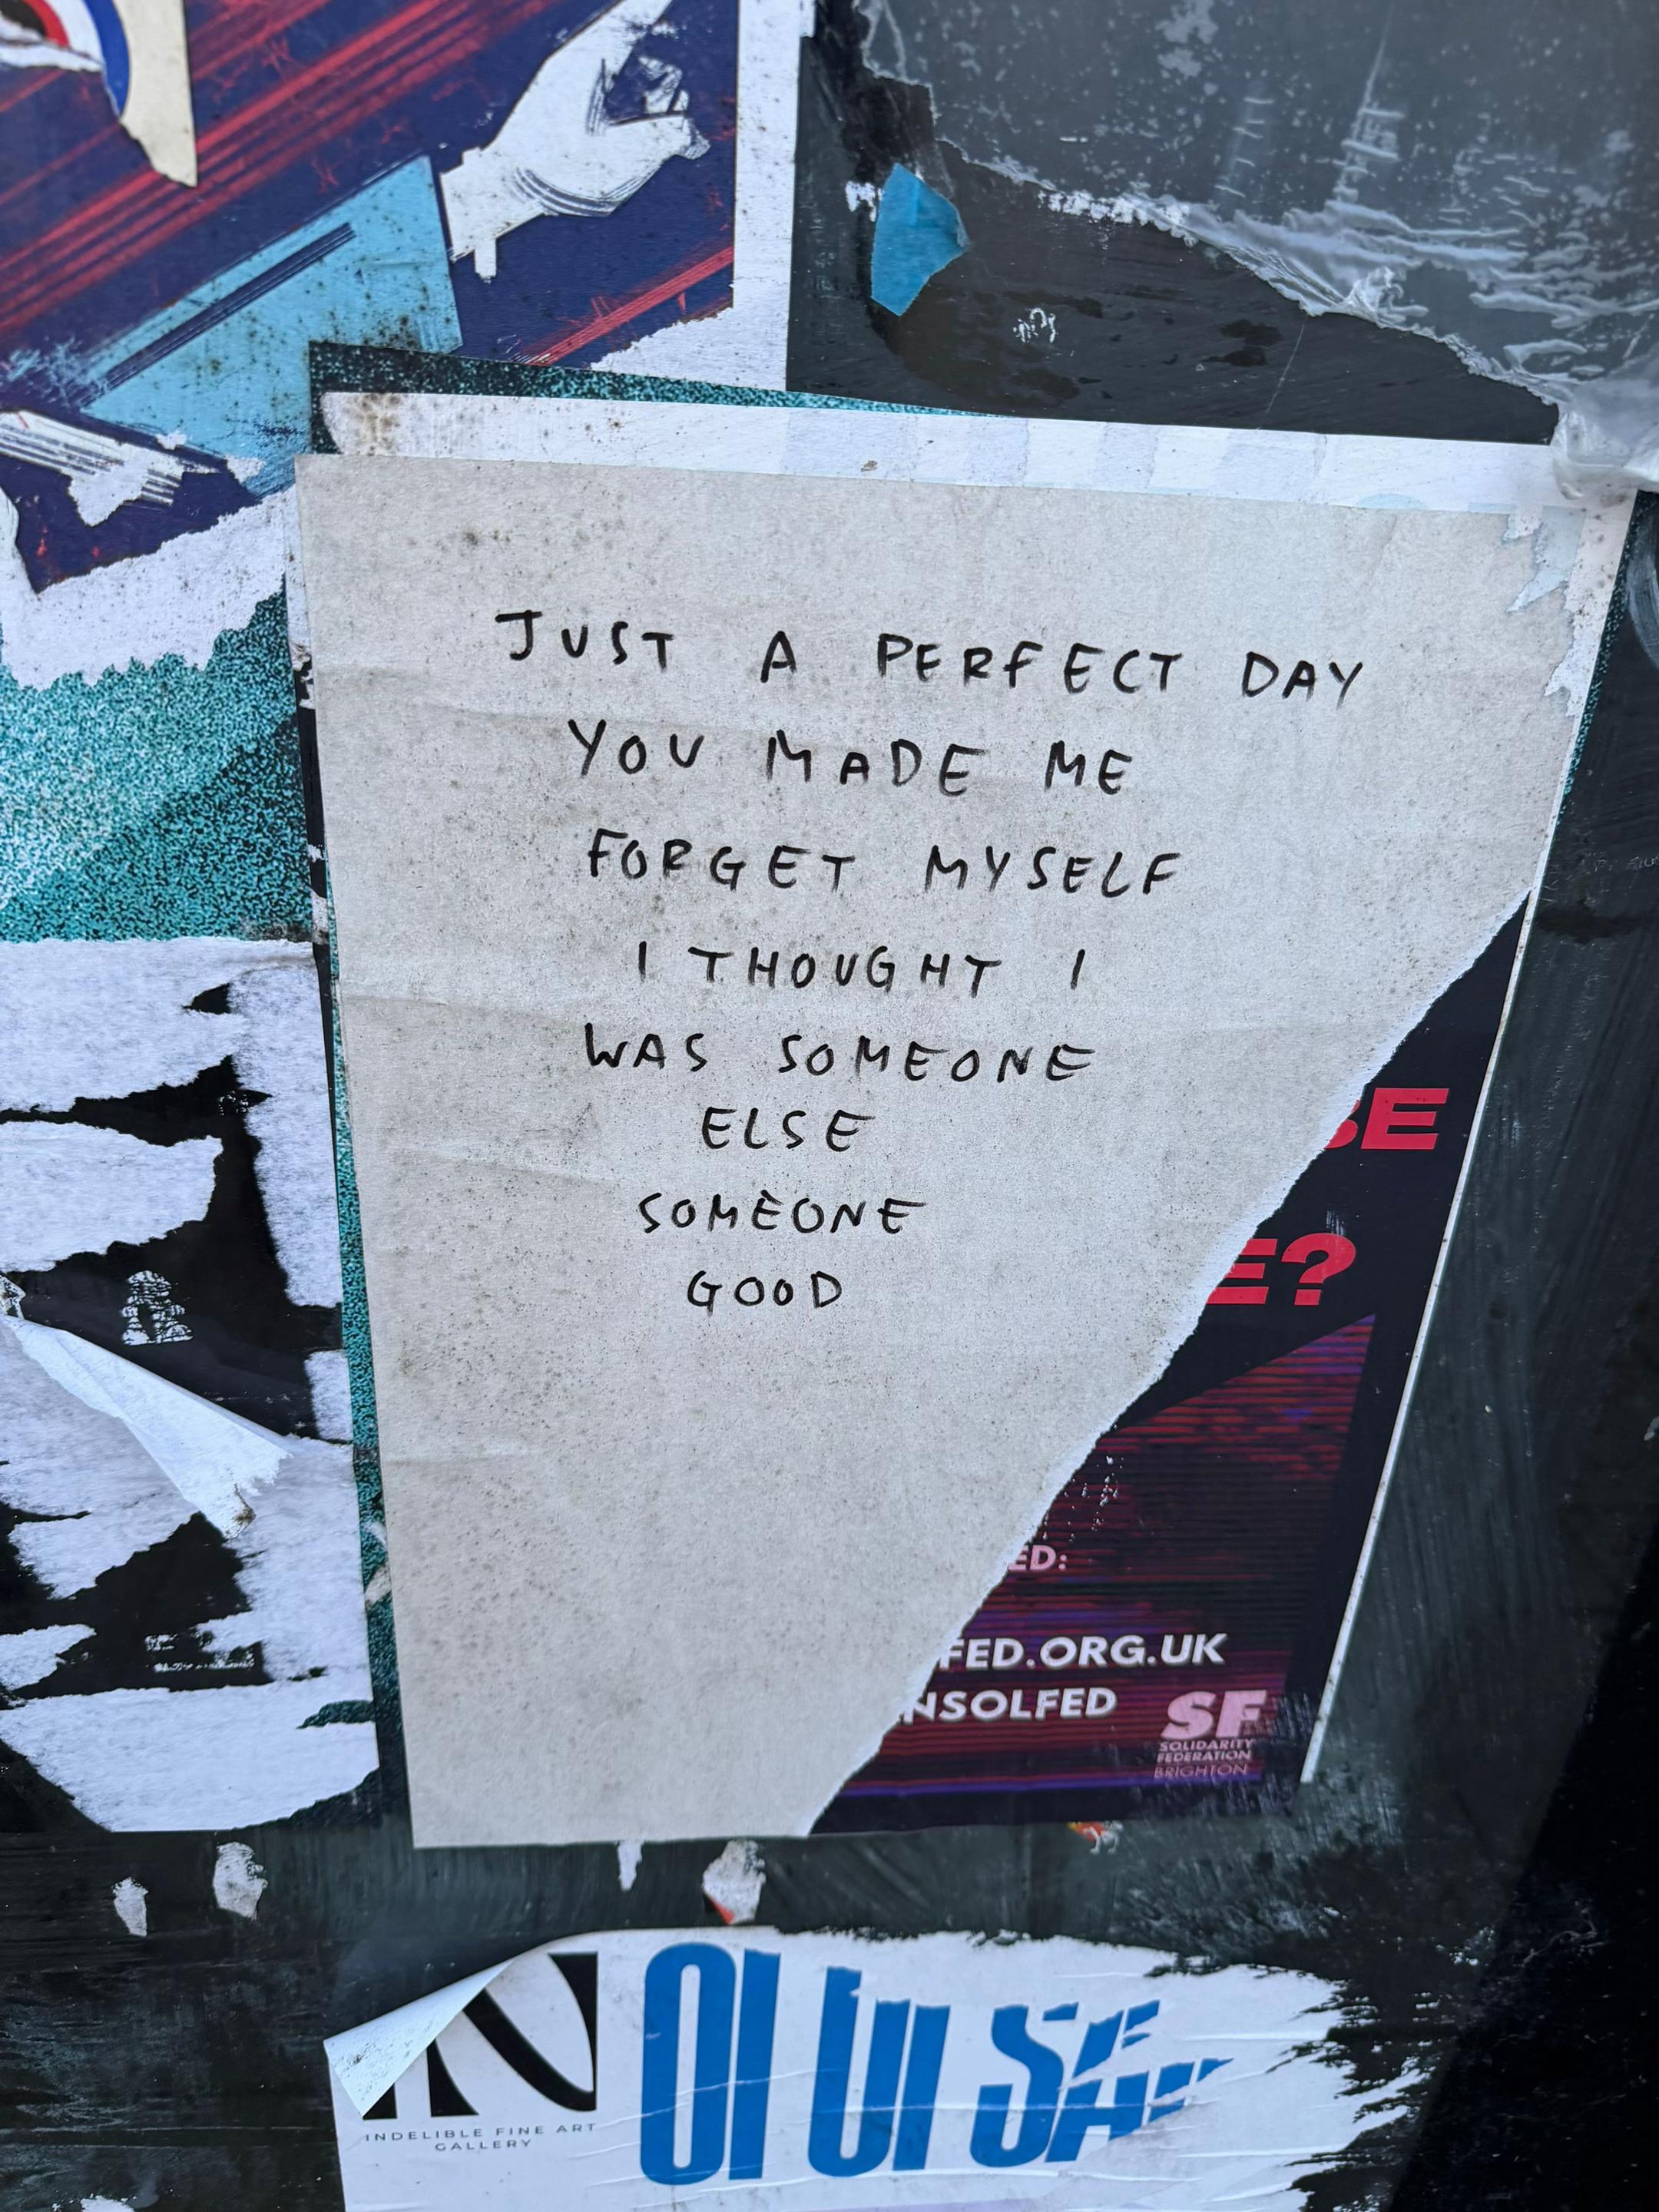 JUST A PERFECT DAY
YOU MADE ME
FORGET MYSELF
I THOUGHT I
WAS SOMEONE
ELSE
SOMEONE
GOOD
E?
ED:
FED.ORG.UK
NSOLFED
SF
SOLIDARITY
FEDERATION
BRIGHTON
IN
INDELIBLE FINE ART
GALLERY